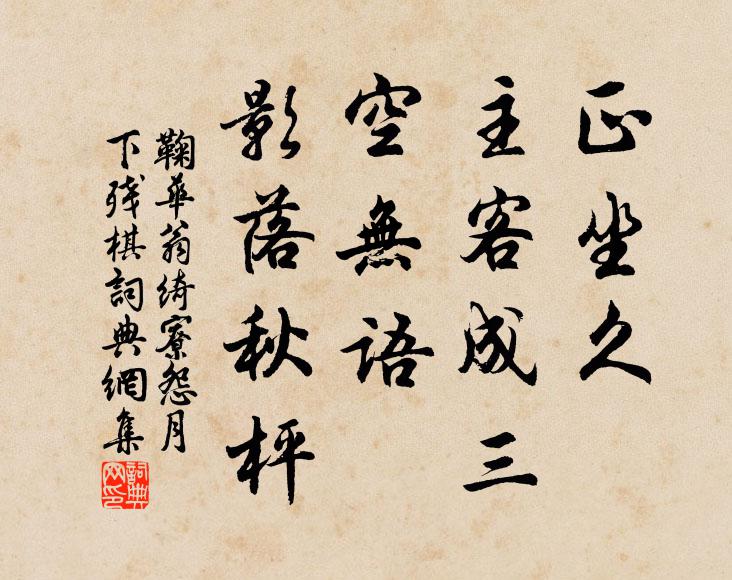 正坐久
主客成三
空無語
影落秋枰
鞠華翁綺寮怨月
下殘棋詞典網集
詞典网印